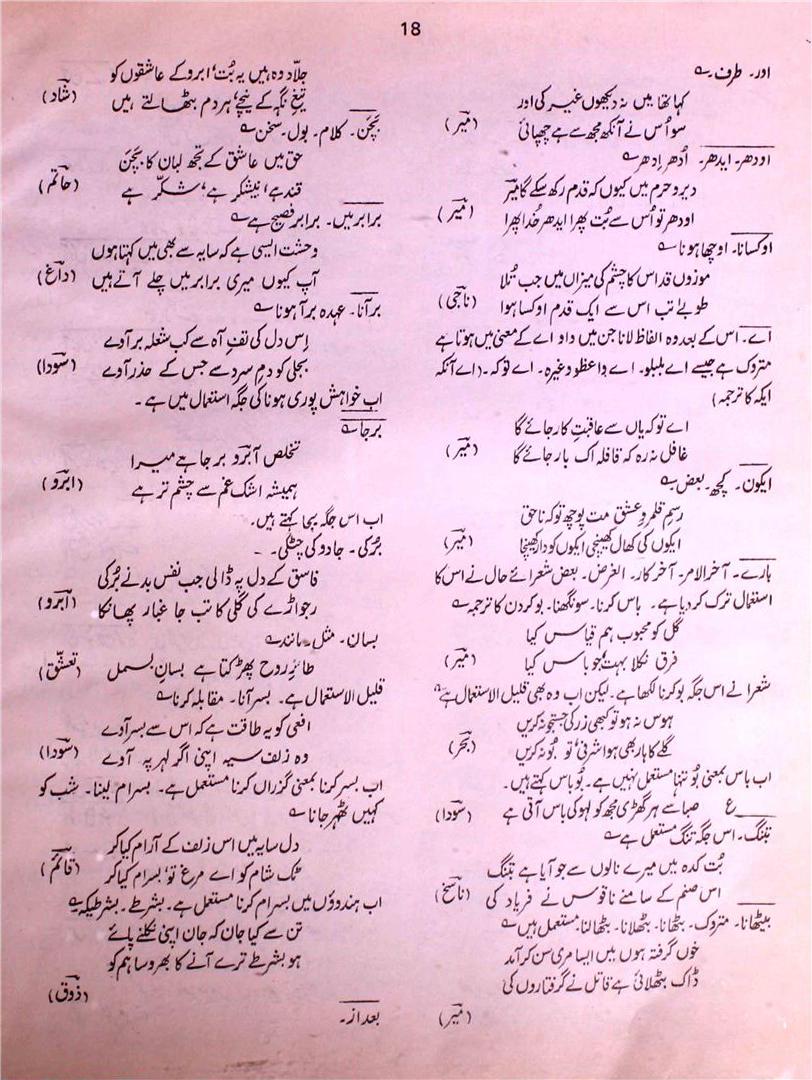 18
اور۔ طرف ؎
کہا تھا میں نہ دیکھوں غیر کی اور
سو اُس نے آنکھ مجھ سے ہے چھپائی (میر)
اودھر۔ ایدھر۔ اُدھر اِدھر ؎
دیر و حرم میں کیوں کہ قدم رکھ سکے گا میر
اودھر تو اُس سے بُت پھرا ایدھر خُدا پھرا (میر)
اوکسانا۔ اوچھا ہونا ؎
موزوں قد اس کا چشم کی میزاں میں جب تُلا
طوبےٰ تب اس سے ایک قدم اوکسا ہوا (ناجی)
اے۔ اس کے بعد وہ الفاظ لانا جن میں واو اے کے معنی میں ہوتا ہے
متروک ہے جیسے اے بلبلو۔ اے واعظو وغیرہ۔ اے تو کہ۔ (اے آنکہ
ایکہ کا ترجمہ)
اے تو کہ یاں سے عاقبتِ کار جائے گا
غافل نہ رہ کہ قافلہ اک بار جائے گا (میر)
ایکون۔ کچھ۔ بعض ؎
رسمِ قلمروِ عشق مت پوچھ تو کہ ناحق
ایکوں کی کھال کھینچی ایکوں کو دار کھینچا (میر)
بارے۔ آخر الامر۔ آخر کار۔ الغرض۔ بعض شعرائے حال نے اس کا
استعمال ترک کر دیا ہے۔ باس کرنا۔ سونگھنا۔ بو کردن کا ترجمہ ؎
گل کو محبوب ہم قیاس کیا
فرق نکلا بہت جو باس کیا (میر)
شعرا نے اس جگہ بو کرنا لکھا ہے۔ لیکن اب وہ بھی قلیل الاستعمال ہے ؎
ہوس نہ ہو تو کبھی زر کی جستجو نہ کریں
گلے کا ہار بھی ہو اشرفی تو بُو نہ کریں (بحر)
اب باس بمعنی بُو تنہا مستعمل نہیں ہے۔ بُو باس کہتے ہیں۔
ع صبا سے ہر گھڑی مجھ کو لہو کی باس آتی ہے (سودا)
بتنگ۔ اس جگہ تنگ مستعمل ہے ؎
بُت کدہ میں میرے نالوں سے جو آیا ہے بتنگ
اس صنم کے سامنے ناقوس نے فریاد کی (ناسخ)
بیٹھانا۔ متروک۔ بٹھانا۔ بٹھلانا۔ بٹھالنا۔ مستعمل ہیں ؎
خوں گرفتہ ہوں میں ایسا مری سن کر آمد
ڈاک بٹھلائی ہے قاتل نے گرفتاروں کی
(میر)
جلّاد وہ ہیں یہ بُت، ابرو کے عاشقوں کو
تیغِ نگہ کے نیچے، ہر دم بٹھالتے ہیں (شاد)
بَچَن۔ کلام۔ بول۔ سخن ؎
حق میں عاشق کے تجھ لبان کا بَچَن
قند ہے، نیشکر ہے، شکّر ہے (حاتم)
برابر میں۔ برابر فصیح ہے ؎
وحشت ایسی ہے کہ سایہ سے بھی میں کہتا ہوں
آپ کیوں میری برابر میں چلے آتے ہیں (داغ)
بر آنا۔ عہدہ برآ ہونا ؎
اِس دل کی تفِ آہ سے کب شعلہ بر آوے
بجلی کو دمِ سرد سے جس کے حذر آوے (سودا)
اب خواہش پوری ہونا کی جگہ استعمال میں ہے۔
برجا ؎
تخلص آبرو برجا ہے میرا
ہمیشہ اشک غم سے چشم تر ہے (ابرو)
اب اس جگہ بجا کہتے ہیں۔
بُرکی۔ جادو کی چٹکی۔
فاسق کے دل پہ ڈالی جب نفس بد نے بُرکی
رجواڑے کی گلی کا تب جا غبار پھانکا (آبرو)
بسان۔ مثل۔ مانند ؎
طائرِ روح پھڑکتا ہے بسانِ بسمل (تعشق)
قلیل الاستعمال ہے۔ بسر آنا۔ مقابلہ کرنا ؎
افعی کو یہ طاقت ہے کہ اس سے بسر آوے
وہ زلف سیہ اپنی اگر لہر پہ آوے (سودا)
اب بسر کرنا بمعنی گزراں کرنا مستعمل ہے۔ بسرام لینا۔ شب کو
کہیں ٹھہر جانا ؎
دل سایہ میں اس زلف کے آرام کیا کر
ٹک شام کو اے مرغ تو بسرام کیا کر (قائم)
اب ہندوؤں میں بسرام کرنا مستعمل ہے۔ بشرطے۔ بشرطیکہ ؎
تن سے کیا جان کہ جان اپنی نکلنے پائے
ہو بشرطے ترے آنے کا بھروسا ہم کو
(ذوق)
بعد از۔